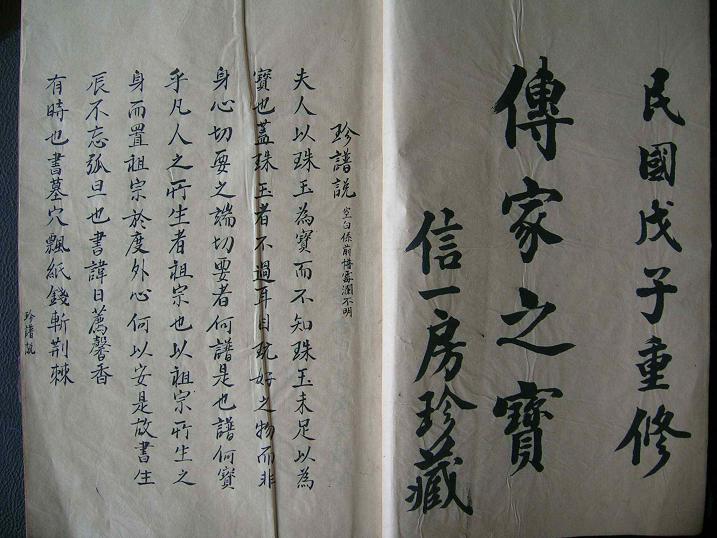 民國戊子重修
傳家之寶
信一房珍藏
珍譜説
空白係前代落濶不明
夫人以珠玉為寶而不知珠玉未足以為
寶也蓋珠玉者不過耳目玩好之物而非
身心切要之端切要者何譜是也譜何寶
乎凡人之所生者祖宗也以祖宗所生之
身而置祖宗於度外心何以安是故書生
辰不忘弧旦也書諱日薦馨香
有時也書墓穴飄紙錢斬荆棘
珍譜説